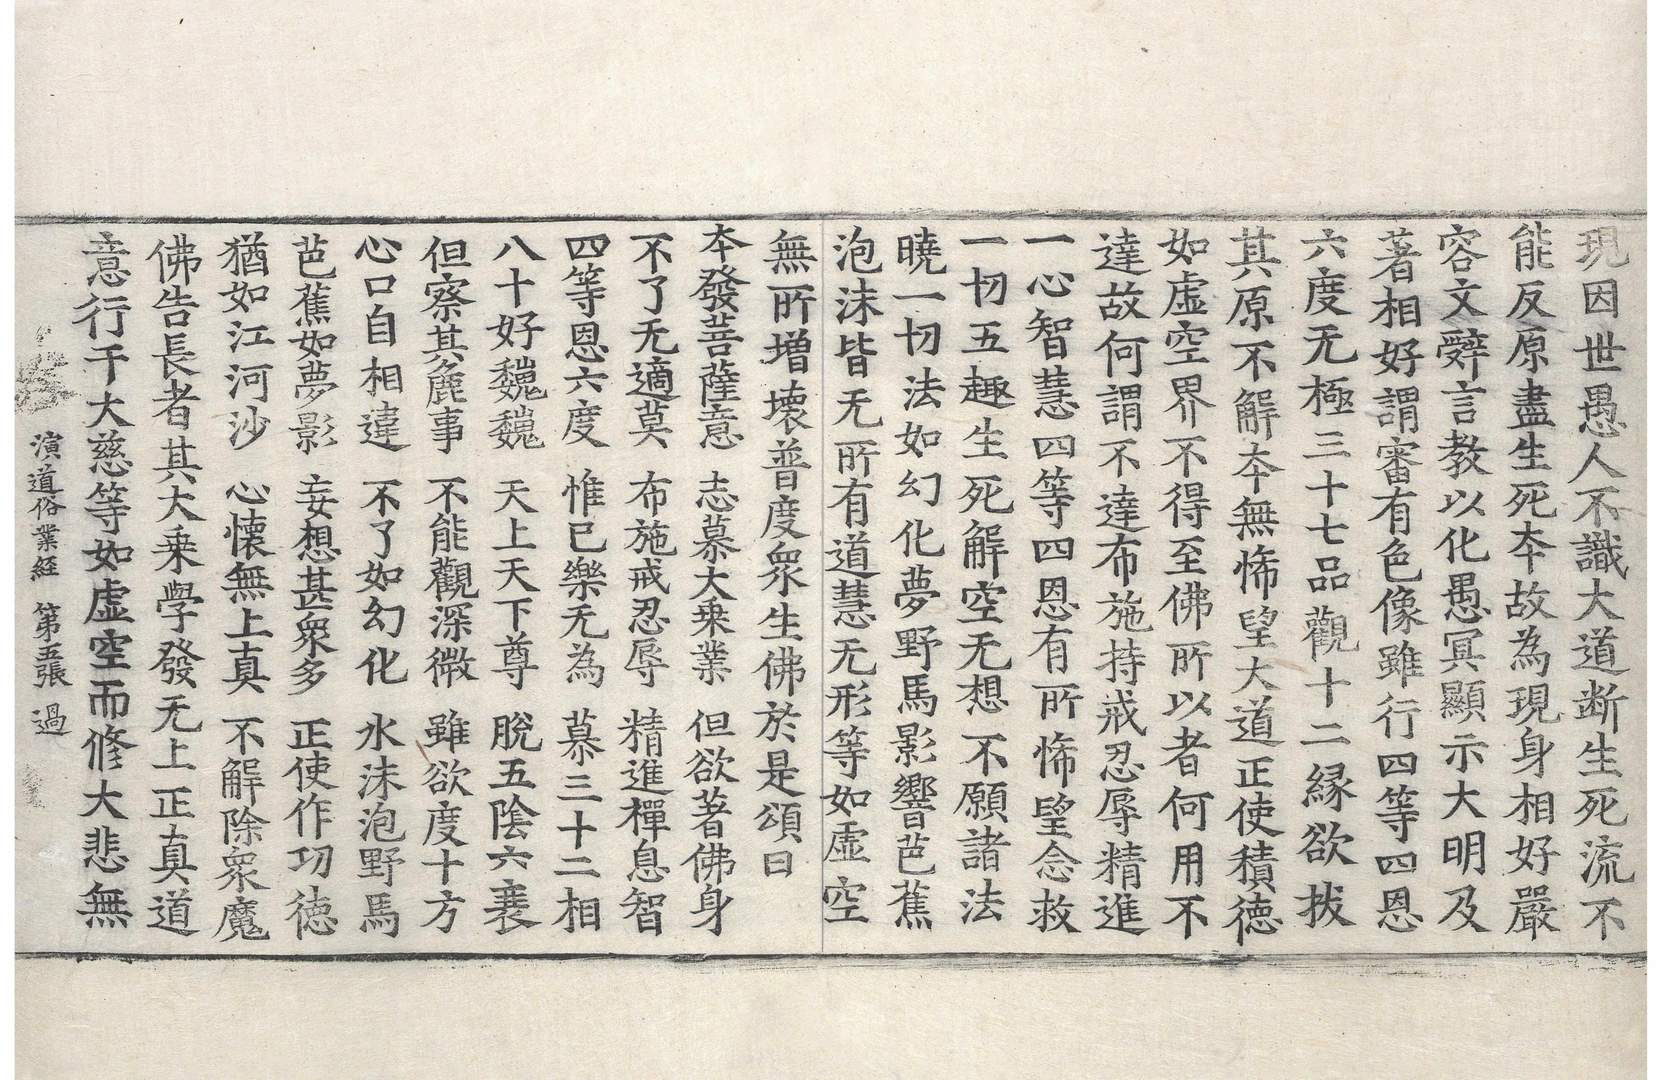 現因世愚人不識大道断生死流不
能反原盡生死夲故為現身相好嚴
容文辝言教以化愚冥顯示大明及
著相好謂審有色像雖行四等四恩
六度无極三十七品觀十二縁欲拔
其原不解夲無悕望大道正使積德
如虚空界不得至佛所以者何用不
達故何謂不達布施持戒忍辱精進
一心智慧四等四恩有所悕望念救
一切五趣生死解空无想不願諸法
曉一切法如幻化夢野馬影響芭蕉
泡沫皆无所有道慧无形等如虚空
無所増壞普度衆生佛於是頌曰
夲發菩薩意 志慕大乗業 但欲著佛身
不了无適莫 布施戒忍辱 精進禪息智
四等恩六度 惟已樂无為 慕三十二相
八十好巍巍 天上天下尊 脫五陰六衰
但察其麁事 不能觀深微 雖欲度十方
心口自相違 不了如幻化 水沫泡野馬
芭蕉如夢影 妄想甚衆多 正使作功徳
猶如江河沙 心懐無上真 不解除衆魔
佛告長者其大乗學發无上正真道
意行于大慈等如虚空而修大悲無
演道俗業経 第五張 過